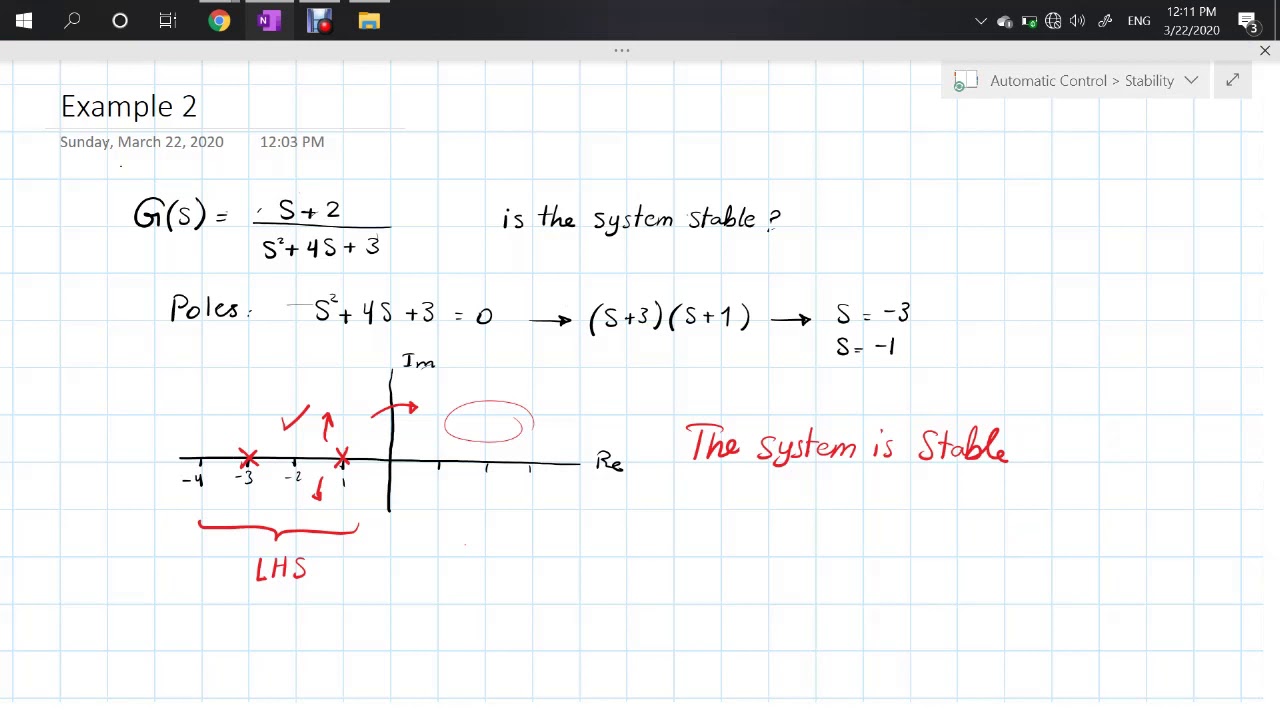 ENG
12:11 PM
3/22/2020
3
Automatic Control > Stability
Example 2
Sunday, March 22, 2020 12:03 PM
G(S) = S + 2 is the system stable?
S² + 4S + 3
Poles: S² + 4S + 3 = 0 → (S+3)(S+1) → S = -3
S = -1
Im
✓ ↑ →
The system is Stable
Re
-4 -3 -2 1
↓
LHS